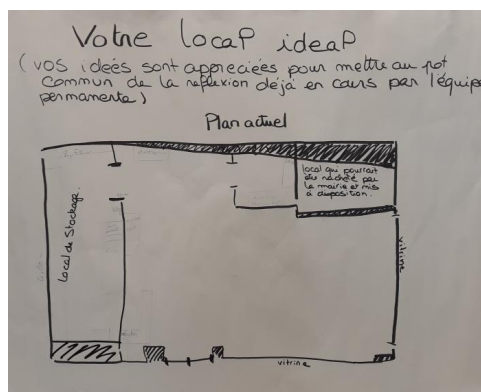 Votre local ideal
(vos ideés sont appreciées pour mettre au pot
commun de la reflexion déjà en cours par l'équipe
permanente)
Plan actuel
local qui pourrait
être racheté par
la mairie et mis
à disposition.
Local de Stockage.
vitrine
vitrine